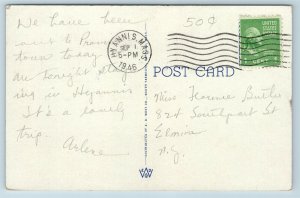 We have been
out to
town today
are tonight
ing in Hyannis
It's a lovely
trip.
Arlene
50¢
HYANNIS, MASS
SEP 1
5-PM
1946
UNITED STATES
POSTAGE
1 CENT
POST CARD
Miss Florence Butler
824 Southport St
Elmira
N.Y.